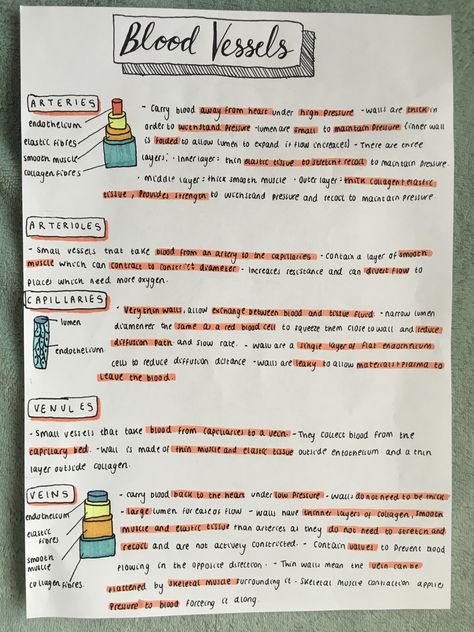 Blood Vessels
ARTERIES
endothelium
elastic fibres
smooth muscle
collagen fibres
- Carry blood away from heart under high pressure - walls are thick in
order to withstand pressure - lumen are small to maintain pressure (inner wall
is folded to allow lumen to expand if flow increases) - There are three
layers: · inner layer: thin elastic tissue to stretch + recoil to maintain pressure.
· middle layer: thick smooth muscle · Outer layer: thick collagen + elastic
tissue, Provides strength to withstand pressure and recoil to maintain pressure.
ARTERIOLES
- Small vessels that take blood from an artery to the capillaries - contain a layer of smooth
muscle which can contract to constrict diameter - Increases resistance and can divert flow to
places which need more oxygen.
CAPILLARIES
lumen
endothelium
- Very thin walls, allow exchange between blood and tissue fluid. - narrow lumen
diameter the same as a red blood cell to squeeze them close to wall and reduce
diffusion path and slow rate. - Wall are a single layer of flat endothelium
cell to reduce diffusion distance - walls are leaky to allow materials + plasma to
leave the blood.
VENULES
- Small vessels that take blood from capillaries to a vein. - They collect blood from the
capillary bed. - Wall is made of thin muscle and elastic tissue outside endothelium and a thin
layer outside collagen.
VEINS
endothelium
elastic
fibres
smooth
muscle
collagen
fibres.
- carry blood back to the heart under low pressure - Walls do not need to be thick
- large lumen for ease of flow - Walls have thinner layers of collagen, smooth
muscle and elastic tissue than arteries as they do not need to stretch and
recoil and are not actively constricted. - Contain valves to prevent blood
flowing in the opposite direction. - Thin walls mean the vein can be
flattened by skeletal muscle surrounding it - skeletal muscle contraction applies
pressure to blood forcing it along.